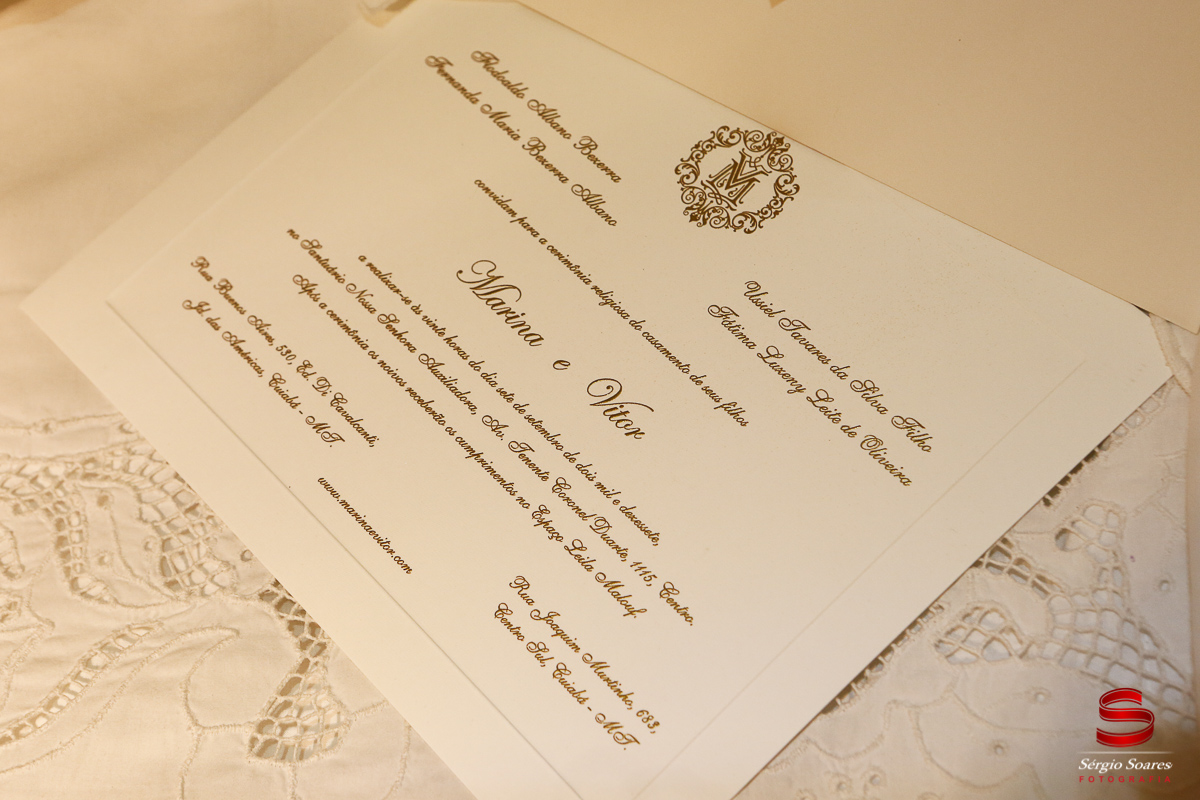 Flodoaldo Albano Bezerra
Fernanda Maria Bezerra Albano
VM
Uziel Tavares da Silva Filho
Fátima Luseny Leite de Oliveira
convidam para a cerimônia religiosa do casamento de seus filhos
Marina e Vitor
a realizar-se às vinte horas do dia sete de setembro de dois mil e dezessete,
no Santuário Nossa Senhora Auxiliadora, Av. Tenente Coronel Duarte, 1115, Centro.
Após a cerimônia os noivos receberão os cumprimentos no Espaço Leila Malouf.
Rua Buenos Aires, 530, Ed. Di Cavalcanti,
Jd. das Américas, Cuiabá - MT.
Rua Joaquim Murtinho, 683,
Centro Sul, Cuiabá - MT.
www.marinaevitor.com
S
Sérgio Soares
FOTOGRAFIA